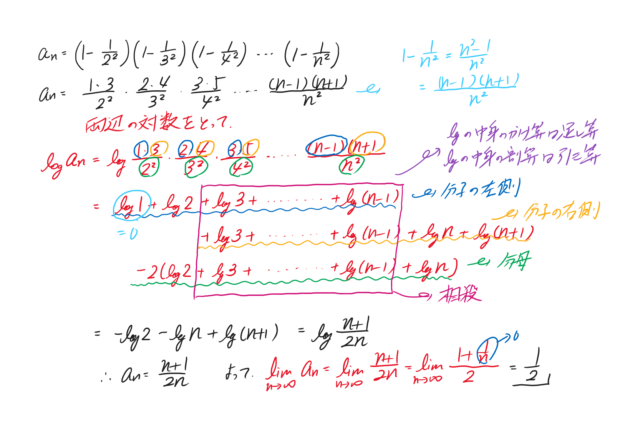 an = (1 - 1/2²)(1 - 1/3²)(1 - 1/4²) ⋯ (1 - 1/n²)
1 - 1/n² = n²-1/n²
an = 1·3/2² · 2·4/3² · 3·5/4² ⋯ (n-1)(n+1)/n²
= (n-1)(n+1)/n²
両辺の対数をとって、
logの中身のかけ算は足し算
logの中身の割算は引き算
log an = log 1·3/2² · 2·4/3² · 3·5/4² ⋯⋯ (n-1)(n+1)/n²
= log1 + log2 + log3 + ⋯⋯ + log(n-1) 分子の左側
= 0
分子の右側
+ log3 + ⋯⋯ + log(n-1) + logn + log(n+1)
-2(log2 + log3 + ⋯⋯ + log(n-1) + logn) 分母
相殺
= -log2 - logn + log(n+1) = log n+1/2n
∴ an = n+1/2n よって、 lim n→∞ an = lim n→∞ n+1/2n = lim n→∞ 1+1/n/2 = 1/2
→0